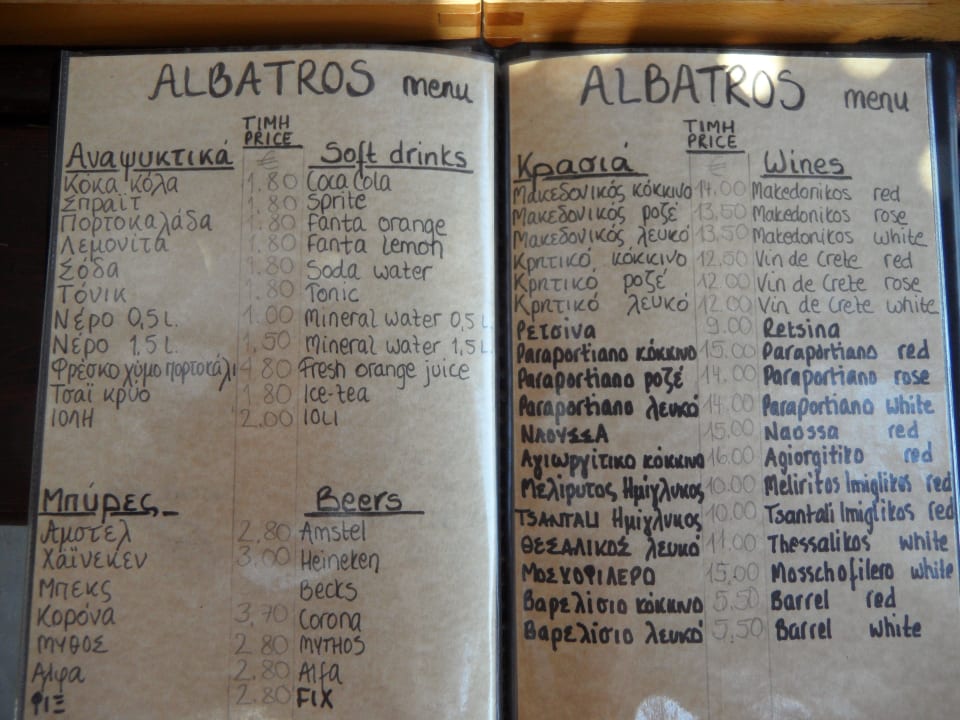 ALBATROS menu
ΤΙΜΗ
PRICE
Αναψυκτικά € Soft drinks
Κόκα κόλα 1.80 Coca Cola
Σπράϊτ 1.80 Sprite
Πορτοκαλάδα 1.80 Fanta orange
Λεμονίτα 1.80 Fanta lemon
Σόδα 1.80 Soda water
Τόνικ 1.80 Tonic
Νέρο 0,5 L. 1.00 Mineral water 0,5 L.
Νέρο 1,5 L. 1,50 Mineral water 1,5 L.
Φρέσκο χύμο πορτοκάλι 4.80 Fresh orange juice
Τσαϊ κρύο 1.80 Ice-tea
ΙΟΛΗ 2,00 IOLI
Μπύρες Beers
Αμστελ 2,80 Amstel
Χάϊνεκεν 3,00 Heineken
Μπεκς Becks
Κορόνα 3,70 Corona
ΜΥΘΟΣ 2.80 MYTHOS
Αλφα 2.80 Alfa
ΦΙΞ 2.80 FIX
ALBATROS menu
ΤΙΜΗ
PRICE
Κρασιά € Wines
Μακεδονικός κόκκινο 14,00 Makedonikos red
Μακεδονικός ροζέ 13,50 Makedonikos rose
Μακεδονικός λευκό 13,50 Makedonikos white
Κρητικό κόκκινο 12,50 Vin de Crete red
Κρητικό ροζέ 12.00 Vin de Crete rose
Κρητικό λευκό 12.00 Vin de Crete white
Ρετσίνα 9.00 Retsina
Paraportiano κόκκινο 15.00 Paraportiano red
Paraportiano ροζέ 14.00 Paraportiano rose
Paraportiano λευκό 14,00 Paraportiano white
ΝΑΟΥΣΣΑ 15.00 Naossa red
Αγιωργίτικο κόκκινο 16.00 Agiorgitiko red
Μελίρυτος Ημίγλυκος 10.00 Meliritos Imiglikos red
TSANTALI Ημίγλυκος 10,00 Tsantali Imiglikos red
ΘΕΣΑΛΙΚΟΣ λευκό 11.00 Thessalikos white
ΜΟΣΧΟΦΙΛΕΡΟ 15,00 Mosschofilero white
Βαρελίσιο κόκκινο 5,50 Barrel red
Βαρελίσιο λευκό 5,50 Barrel white